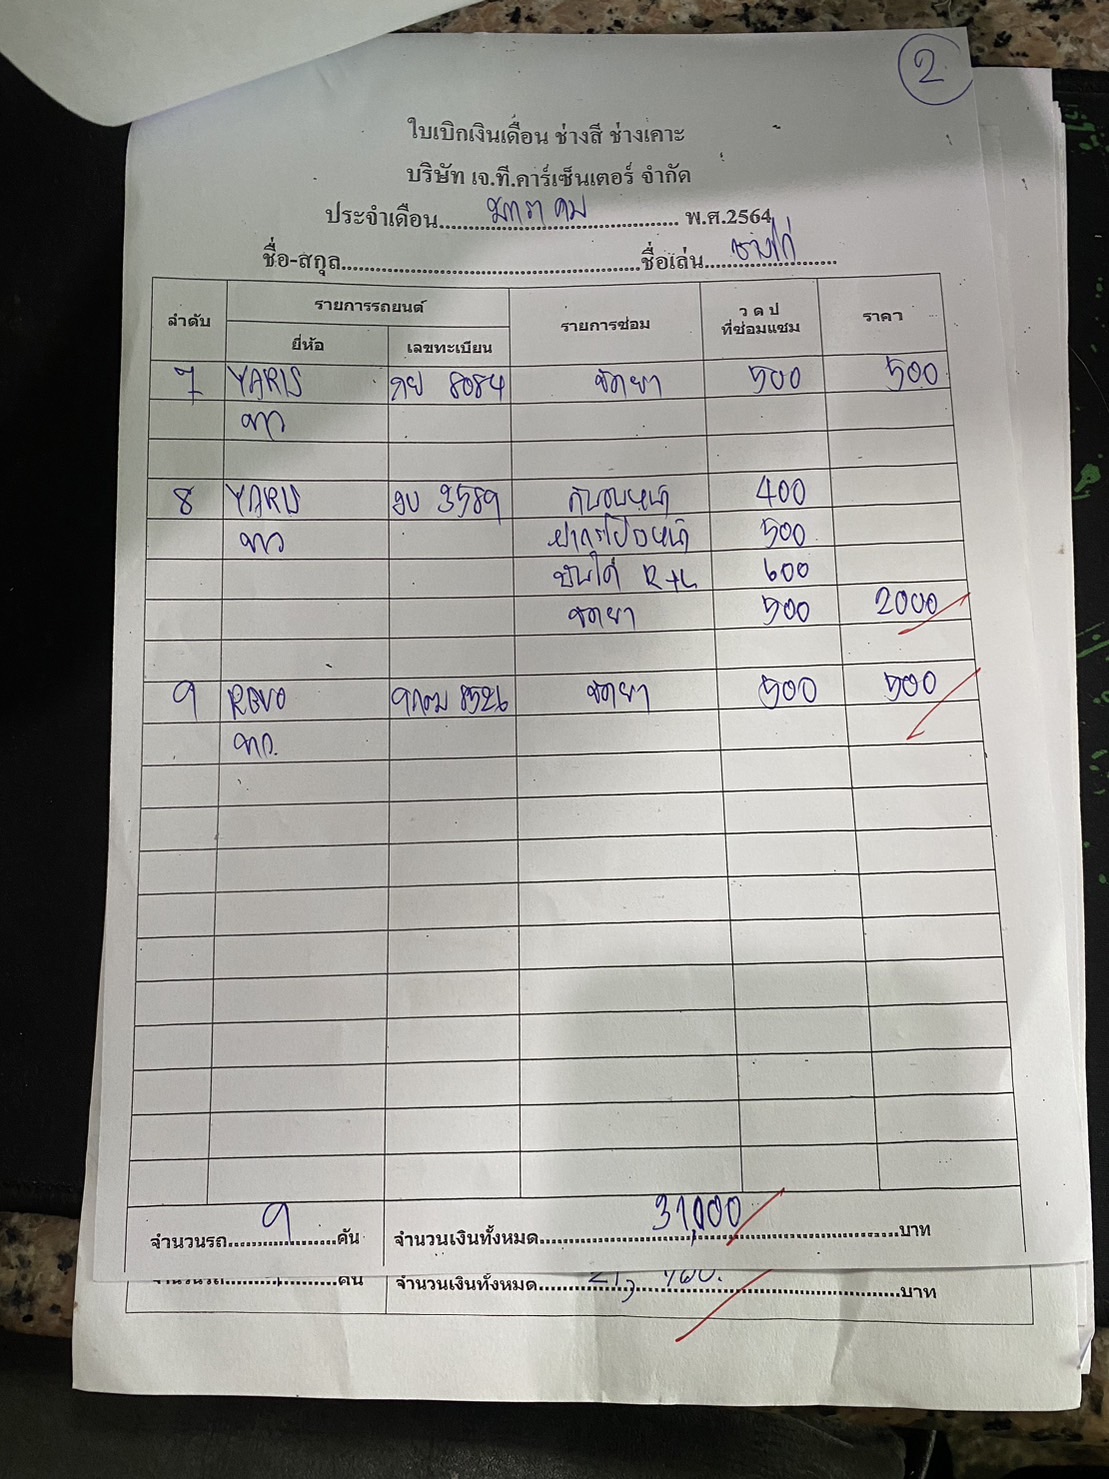 2
ใบเบิกเงินเดือน ช่างสี ช่างเคาะ
บริษัท เจ.ที.คาร์เซ็นเตอร์ จำกัด
ประจำเดือน มกราคม พ.ศ.2564
ชื่อ-สกุล ชื่อเล่น ช่างไก่
ลำดับ รายการรถยนต์ รายการซ่อม ว ด ป ที่ซ่อมแซม ราคา
ยี่ห้อ เลขทะเบียน
7 YARIS 8084 ขัดยา 500 500
ขาว
8 YARIS 3589 กันชนหน้า 400
ขาว ฝากระโปงหน้า 500
บันได R+L 600
ขัดยา 500 2000
9 REVO 8526 ขัดยา 500 500
ขาว.
จำนวนรถ 9 คัน จำนวนเงินทั้งหมด 31,000 บาท
จำนวนรถ คัน จำนวนเงินทั้งหมด บาท